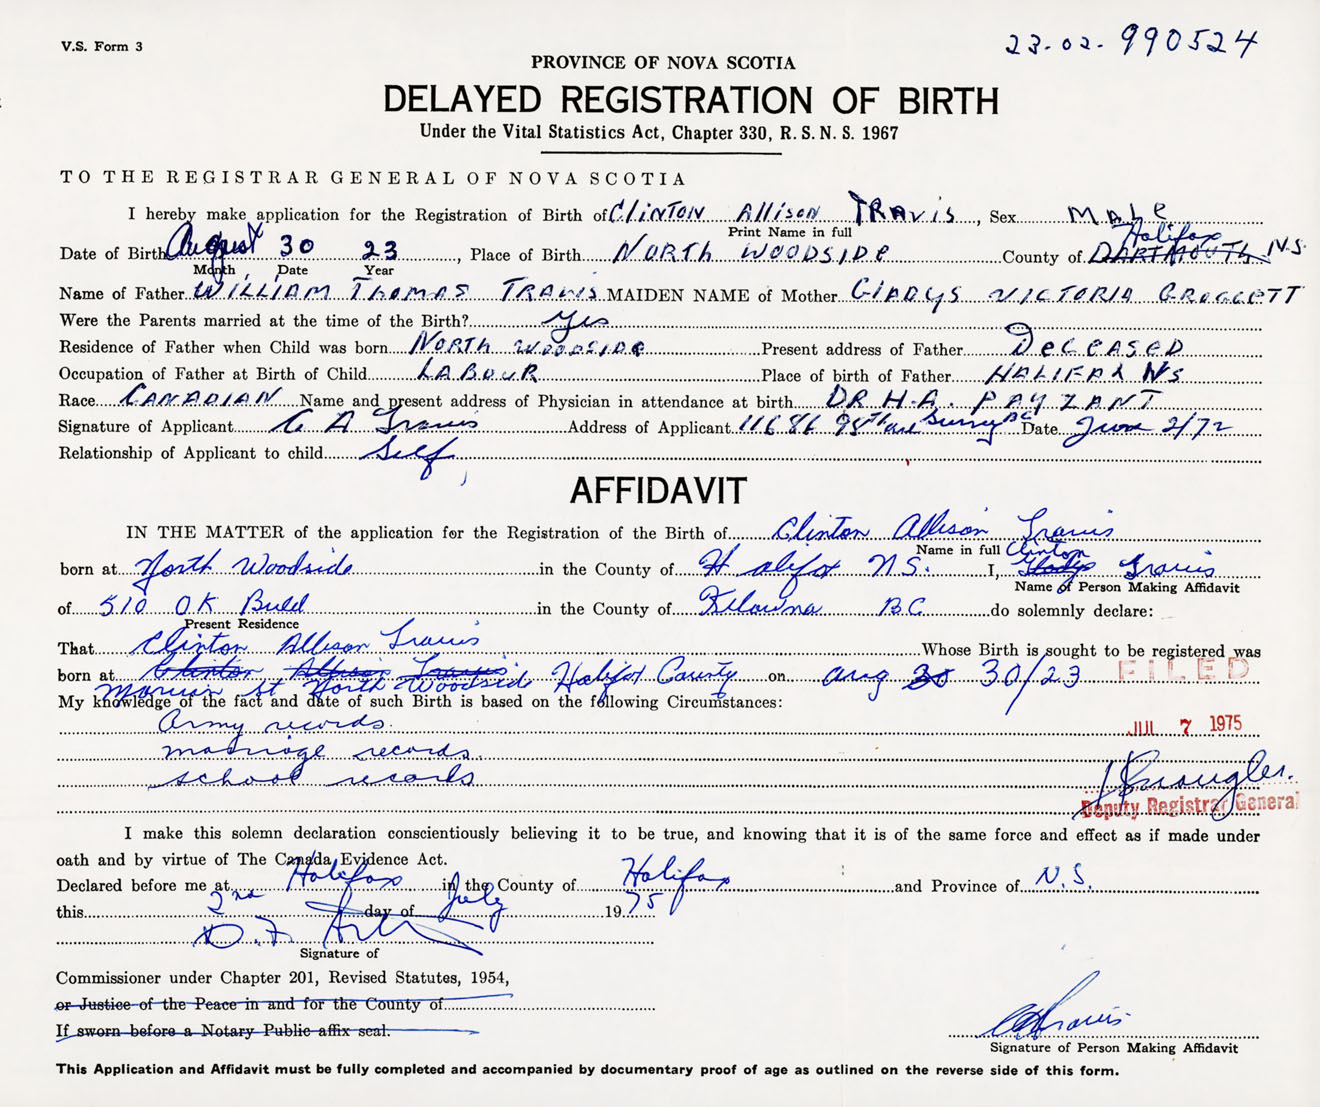 V.S. Form 3
23-02-990524
PROVINCE OF NOVA SCOTIA
DELAYED REGISTRATION OF BIRTH
Under the Vital Statistics Act, Chapter 330, R. S. N. S. 1967
TO THE REGISTRAR GENERAL OF NOVA SCOTIA
I hereby make application for the Registration of Birth of Clinton Allison TRAVIS, Sex MALE
Print Name in full
Halifax
Date of Birth August 30 23, Place of Birth NORTH WOODSIDE County of DARTMOUTH N.S.
Month, Date Year
Name of Father WILLIAM THOMAS TRAVIS MAIDEN NAME of Mother GLADYS VICTORIA
Were the Parents married at the time of the Birth? Yes
Residence of Father when Child was born NORTH WOODSIDE Present address of Father DECEASED
Occupation of Father at Birth of Child LABOUR Place of birth of Father HALIFAX NS
Race CANADIAN Name and present address of Physician in attendance at birth DR H.A. PAYZANT
Signature of Applicant C A Travis Address of Applicant 11686 95th ave Surry BC Date June 2/72
Relationship of Applicant to child Self
AFFIDAVIT
IN THE MATTER of the application for the Registration of the Birth of Clinton Allison Travis
Name in full Clinton
born at North Woodside in the County of Halifax N.S. I, Gladys Travis
Name of Person Making Affidavit
of 510 OK Buld in the County of Kelowna BC do solemnly declare:
Present Residence
That Clinton Allison Travis Whose Birth is sought to be registered was
born at Clinton Allison Travis Halifax County on aug 30 30/23 FILED
St North Woodside
My knowledge of the fact and date of such Birth is based on the following Circumstances:
Army records.
JUL 7 1975
marriage records.
school records
Deputy Registrar General
I make this solemn declaration conscientiously believing it to be true, and knowing that it is of the same force and effect as if made under
oath and by virtue of The Canada Evidence Act.
Declared before me at Halifax in the County of Halifax and Province of N.S.
this 2nd day of July 1975
Signature of
Commissioner under Chapter 201, Revised Statutes, 1954,
or Justice of the Peace in and for the County of
If sworn before a Notary Public affix seal.
CA Travis
Signature of Person Making Affidavit
This Application and Affidavit must be fully completed and accompanied by documentary proof of age as outlined on the reverse side of this form.